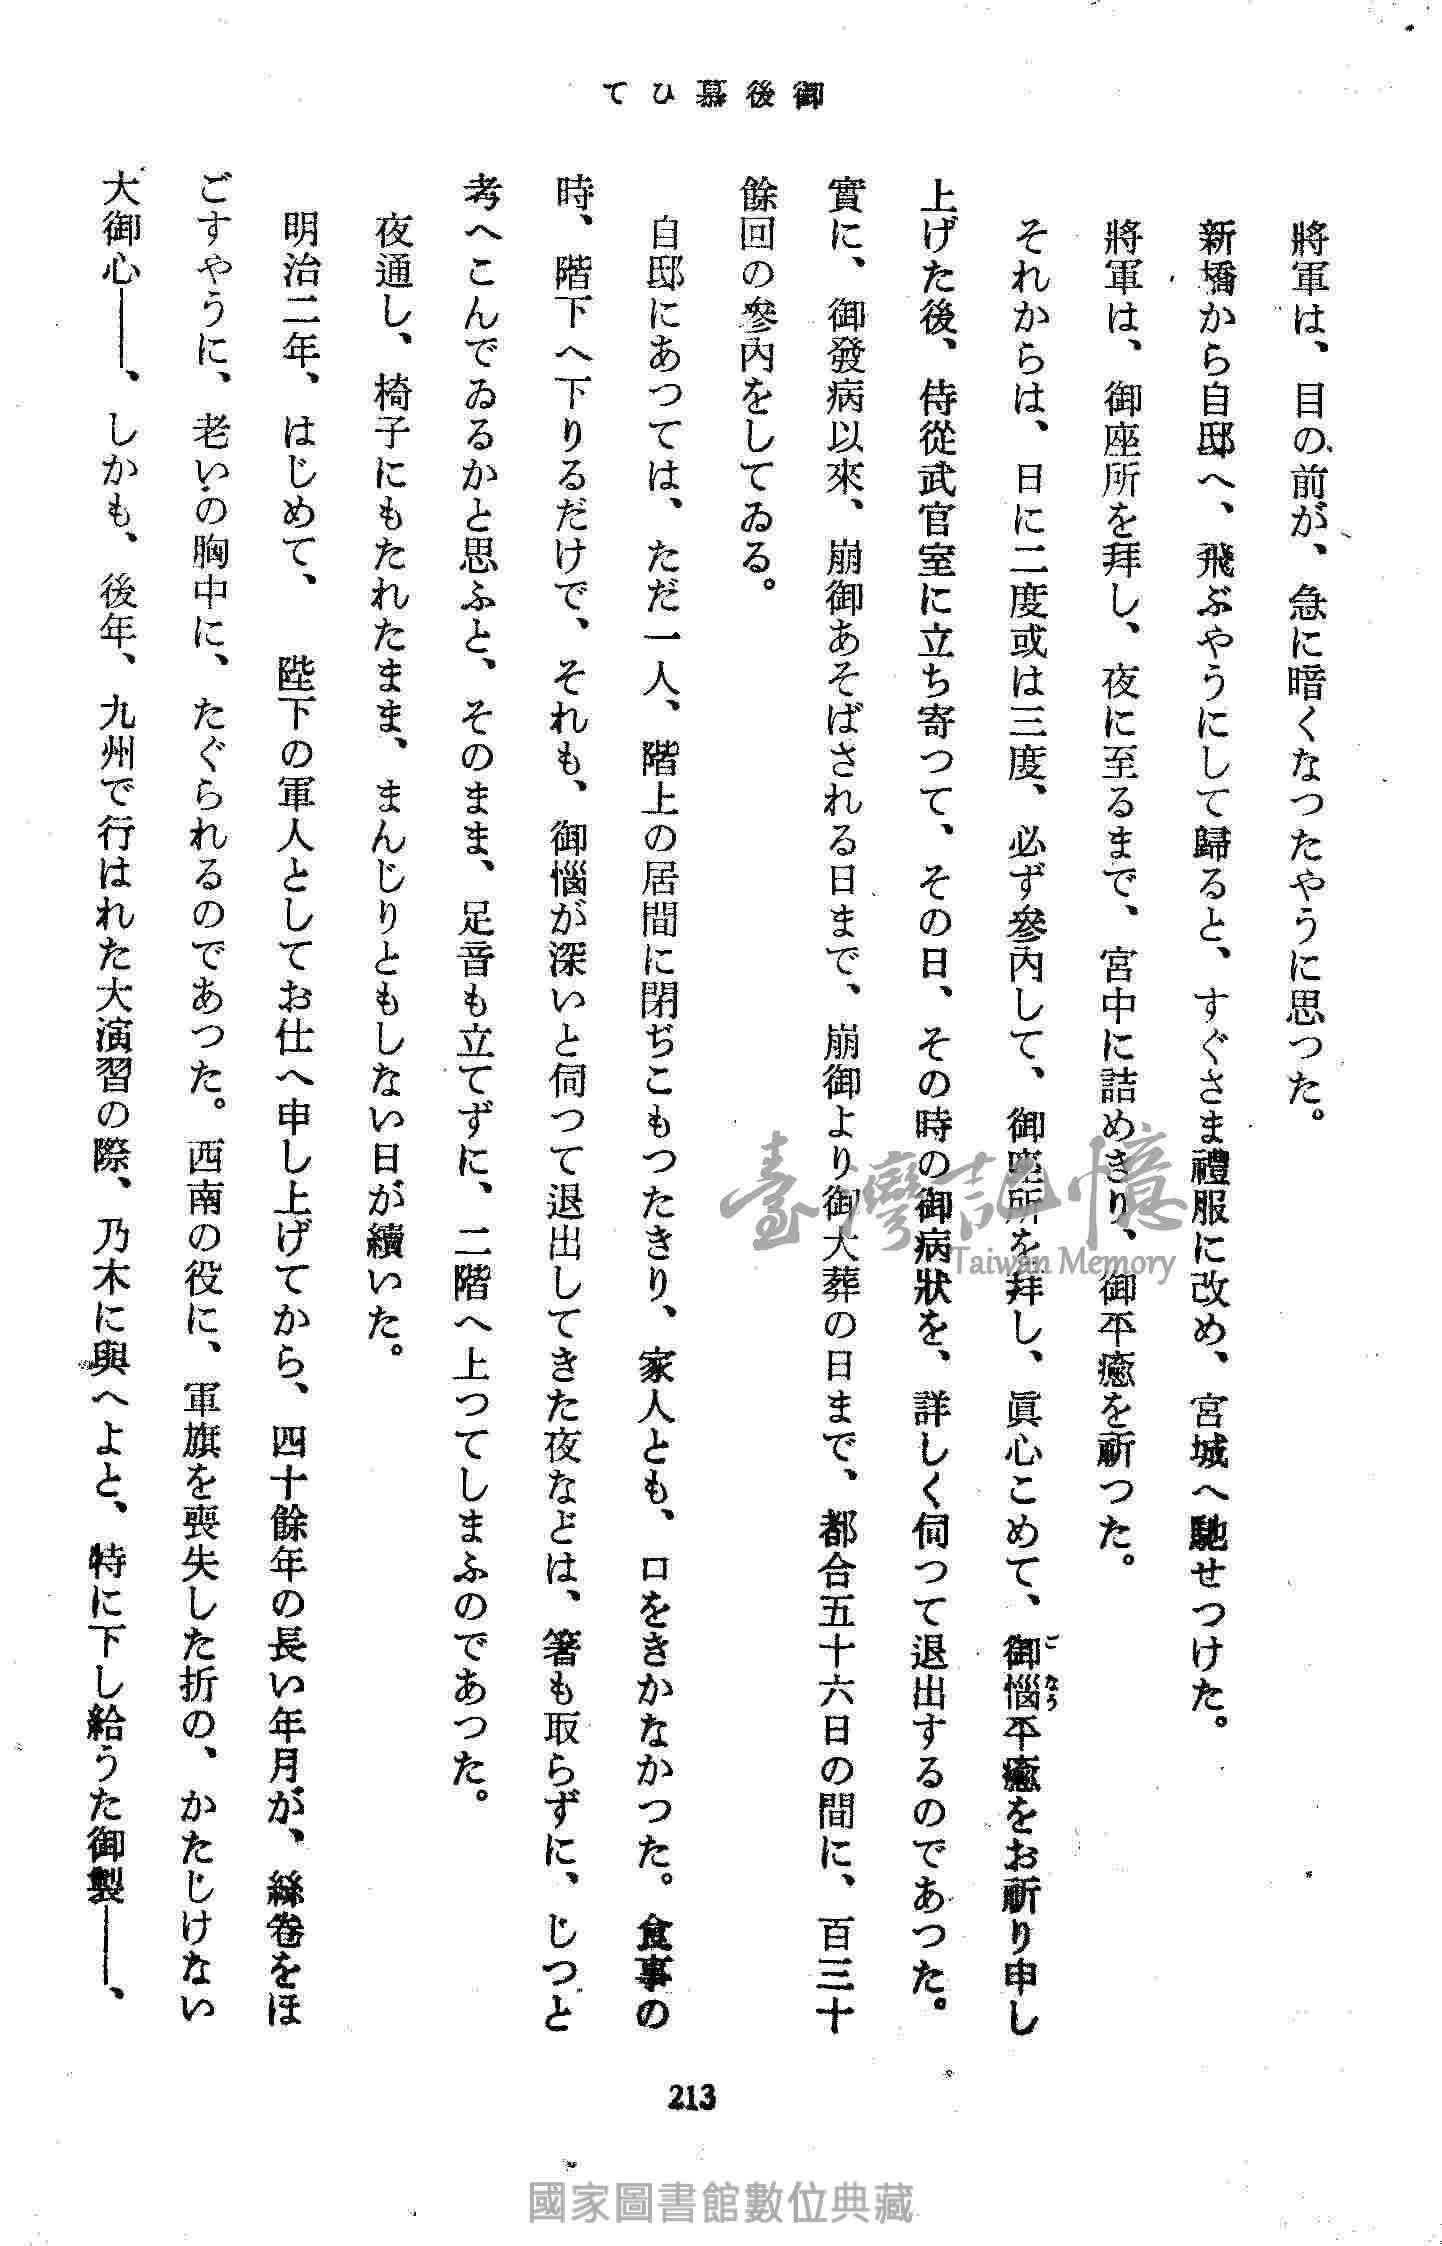 御後慕ひて
將軍は、目の前が、急に暗くなつたやうに思つた。
新橋から自邸へ、飛ぶやうにして歸ると、すぐさま禮服に改め、宮城へ馳せつけた。
將軍は、御座所を拜し、夜に至るまで、宮中に詰めきり、御平癒を祈つた。
それからは、日に二度或は三度、必ず參內して、御座所を拜し、眞心こめて、御惱平癒をお祈り申し
ごなう
上げた後、侍從武官室に立ち寄つて、その日、その時の御病狀を、詳しく伺つて退出するのであつた。
實に、御發病以來、崩御あそばされる日まで、崩御より御大葬の日まで、都合五十六日の間に、百三十
餘回の參內をしてゐる。
自邸にあつては、ただ一人、階上の居間に閉ぢこもつたきり、家人とも、口をきかなかつた。食事の
時、階下へ下りるだけで、それも、御惱が深いと伺つて退出してきた夜などは、箸も取らずに、じつと
考へこんでゐるかと思ふと、そのまま、足音も立てずに、二階へ上つてしまふのであつた。
夜通し、椅子にもたれたまま、まんじりともしない日が續いた。
明治二年、はじめて、　陛下の軍人としてお仕へ申し上げてから、四十餘年の長い年月が、絲卷をほ
ごすやうに、老いの胸中に、たぐられるのであつた。西南の役に、軍旗を喪失した折の、かたじけない
大御心――、しかも、後年、九州で行はれた大演習の際、乃木に與へよと、特に下し給うた御製――、
213
臺灣記憶
Taiwan Memory
國家圖書館數位典藏